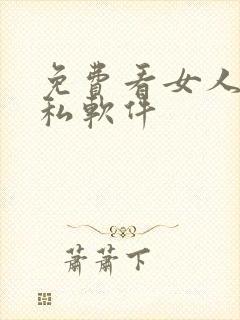 免費看女人
私軟件
蕭蕭下